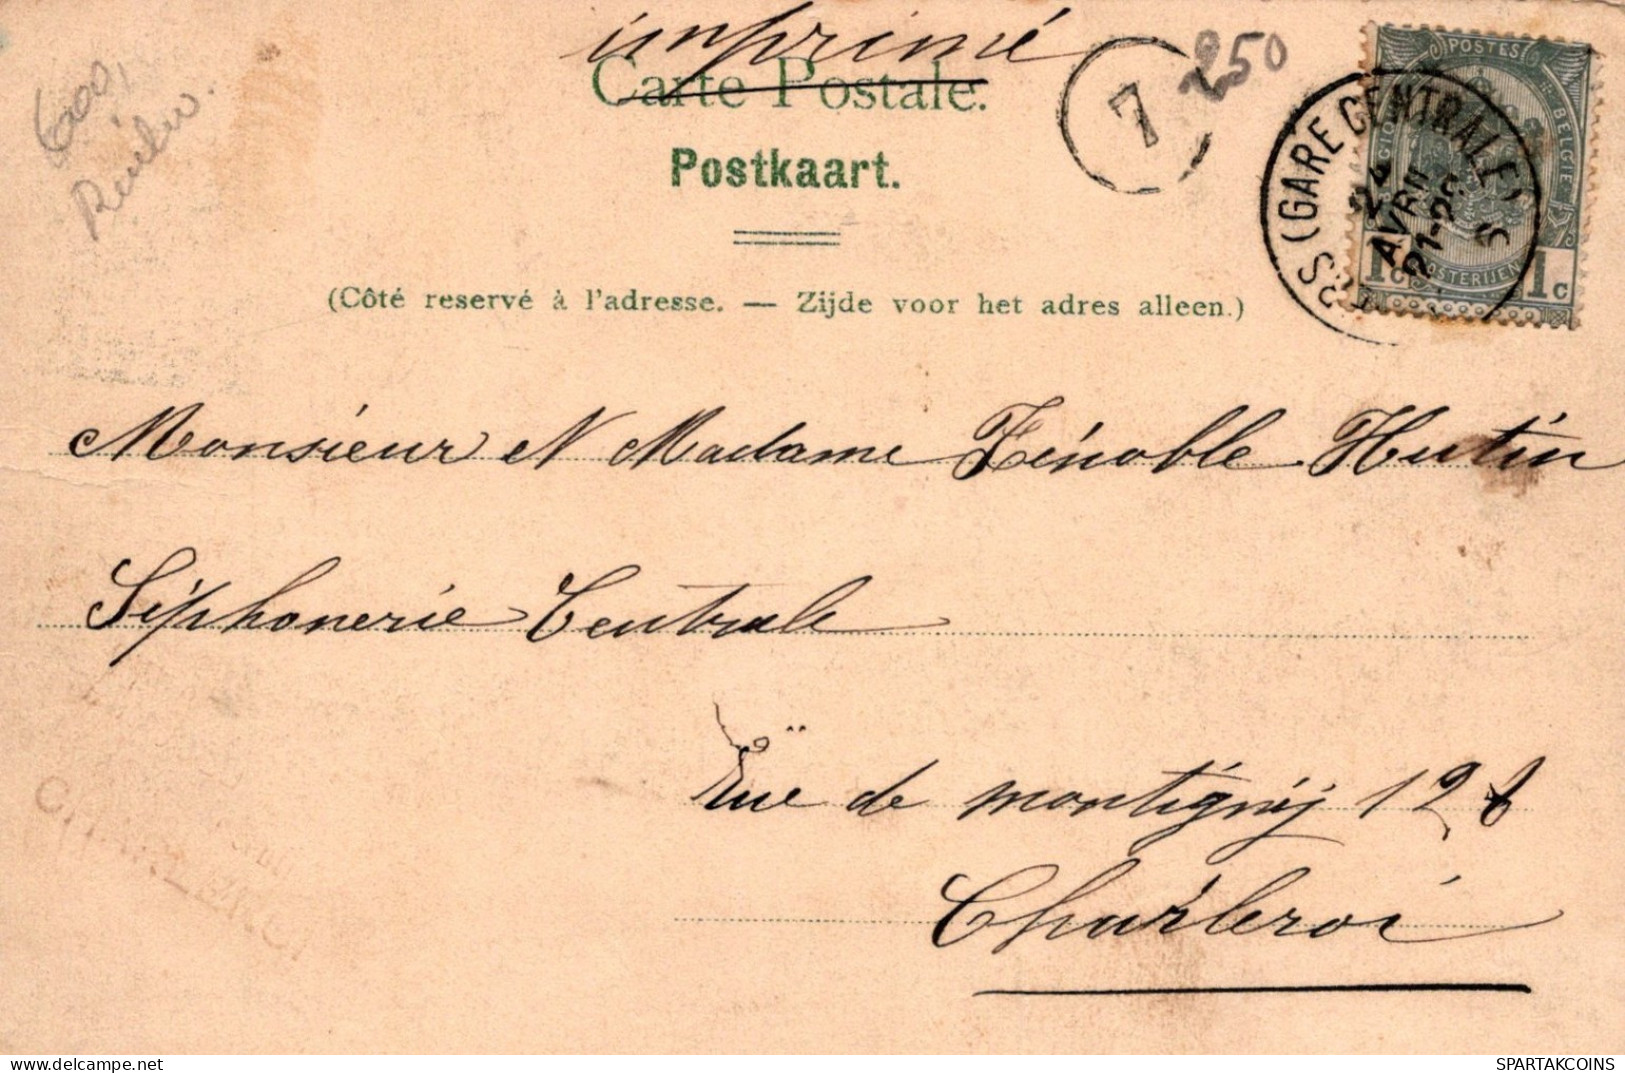 imprimé
Carte Postale.
Postkaart.
7
250
600,
POSTES
BELGIE
POSTERIJEN
1c 1c
(GARE CENTRALE)
24
AVRIL
21-22
(Côté reservé à l'adresse. — Zijde voor het adres alleen.)
Monsieur et Madame Fénoble Hutin
Siphonerie Centrale
Rue de montigny 128
Charleroi
SPARTAKCOINS
http://www.delcampe.net